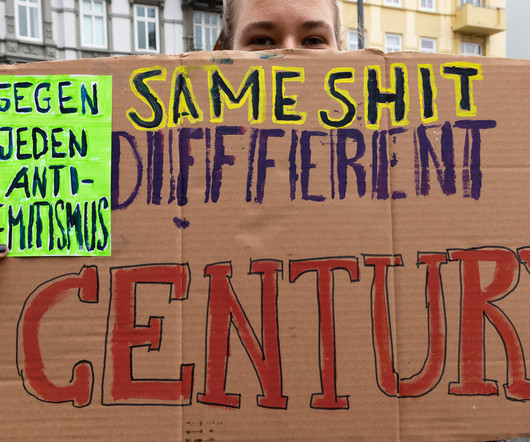 GEGEN
JEDEN
ANTI-
EMITISMUS
SAME SHIT
DIFFERENT
CENTURY